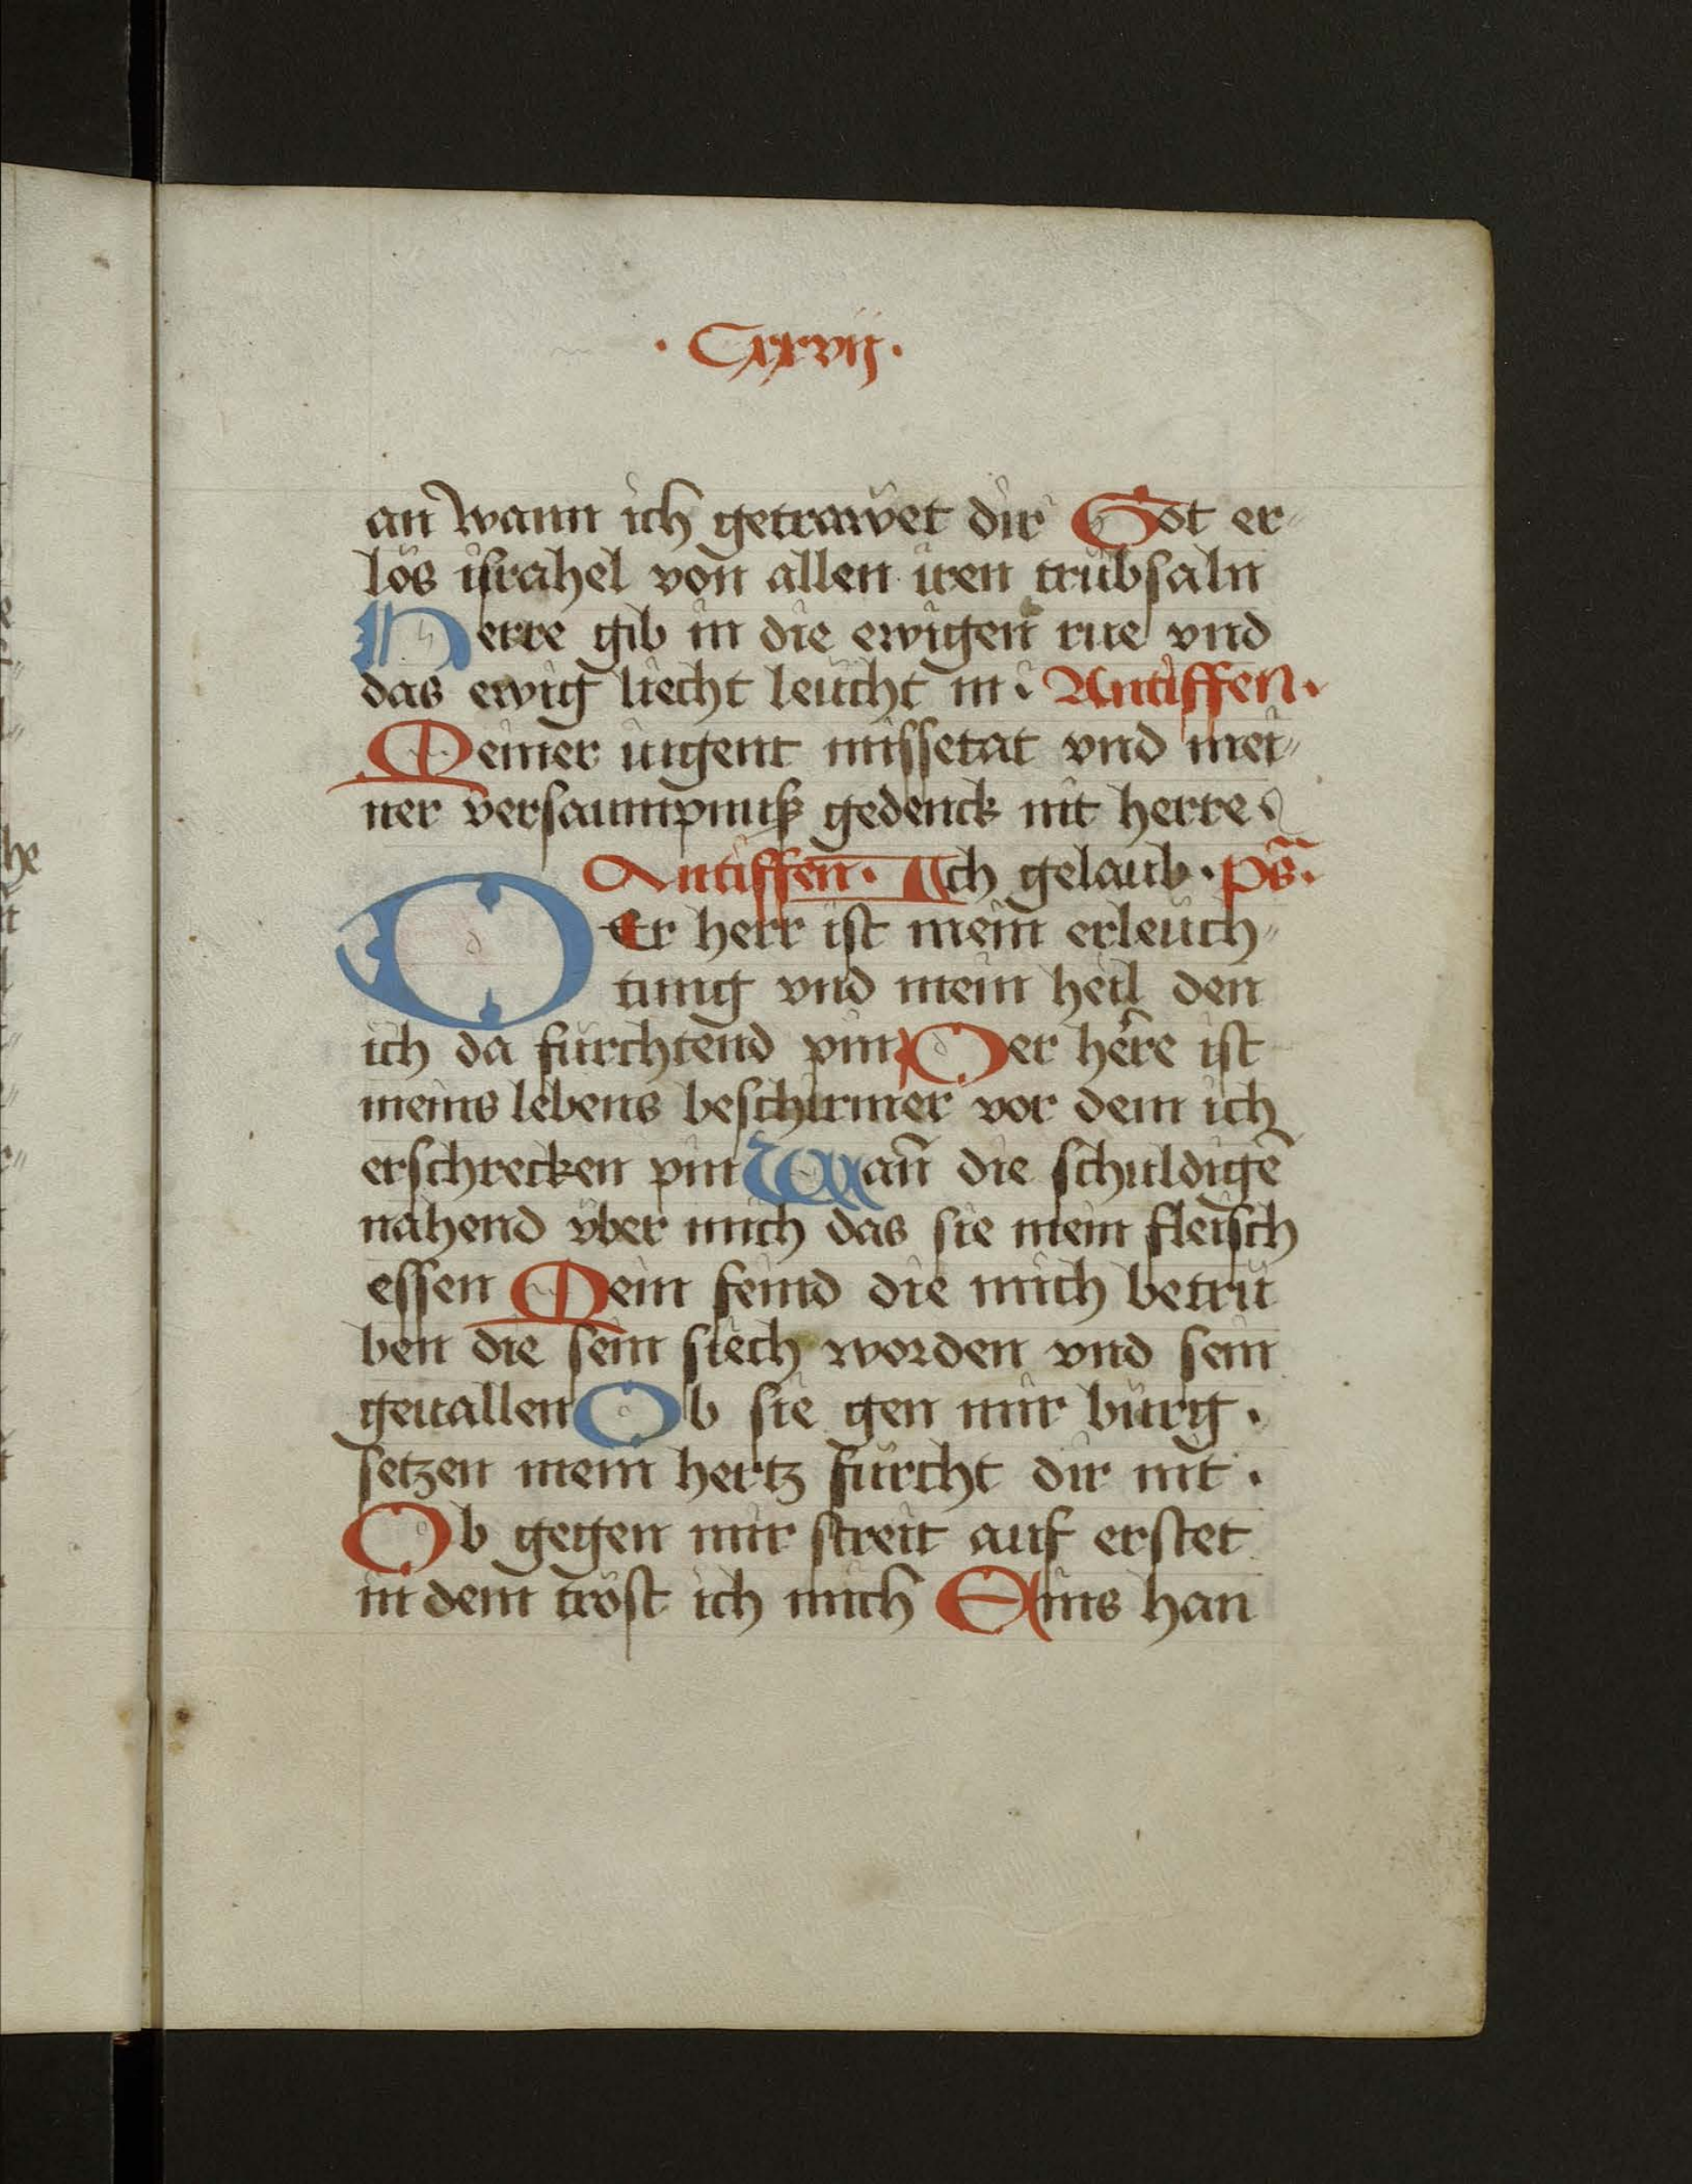 · Cxxvij ·
an wann ich getrawet dir Got er„
lös israhel von allen iren trübsaln
Herre gib in die ewigen rue vnd
das ewig liecht leücht in · Antiffen ·
Meiner iugent missetat vnd mei„
ner versaumpnuß gedenck nit herre ·
Antiffen · Ich gelaub · ps̃ ·
DEr herr ist mein erleüch„
tung vnd mein heil den
ich da fürchtend pin Der herre ist
meins lebens beschirmer vor dem ich
erschrecken pin Wañ die schuldigē
nahend vber mich das sie mein fleisch
essen Mein feind die mich betrü
ben die sein siech worden vnd sein
geuallen Ob sie gen mir bürg ·
setzen mein hertz fürcht dir nit ·
Ob gegen mir streit auf erstet
in dem tröst ich mich Eins han